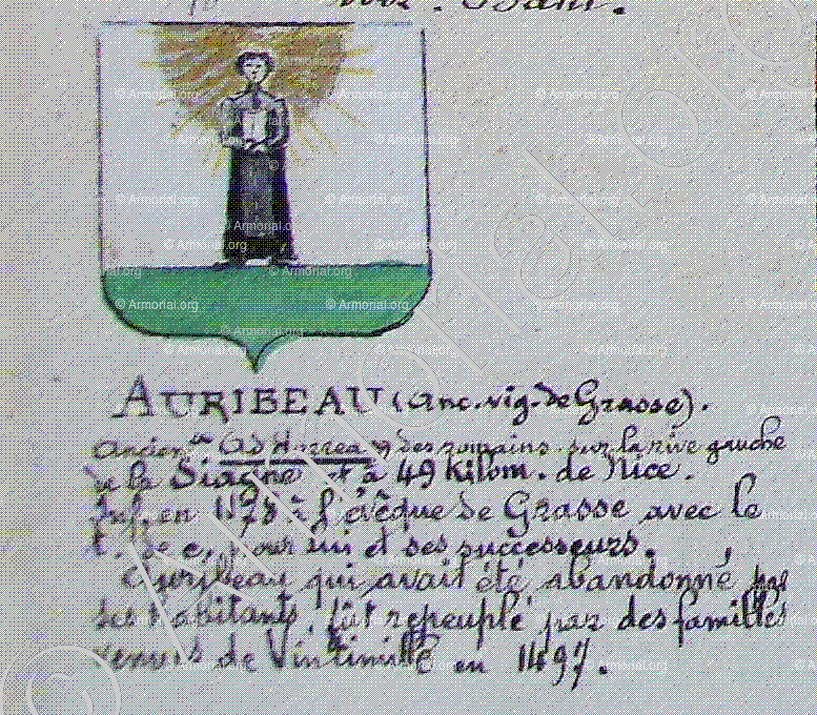 AURIBEAU (anc. vig. de Grasse).
ancien.ne Ad Horrea des romains. sur la rive gauche
de la Siagne et à 49 kilom. de Nice.
Inf. en 1178 à l'évêque de Grasse avec le
t. de c, pour lui et ses successeurs.
Auribeau qui avait été abandonné par
ses habitants, fût repeuplé par des familles
venues de Vintimille en 1497.
© Armorial.org